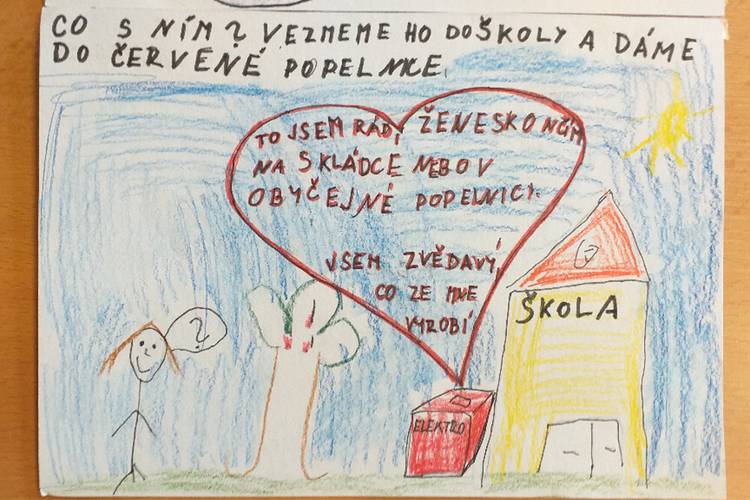 CO S NÍM? VEZMEME HO DOŠKOLY A DÁME
DO ČERVENÉ POPELNICE.
TO JSEM RÁD, ŽENESKONČÍM
NA SKLÁDCE NEBO V
OBYČEJNÉ POPELNICI.
JSEM ZVĚDAVÝ,
CO ZE MNE
VYROBÍ
ŠKOLA
?
ELEKTRO